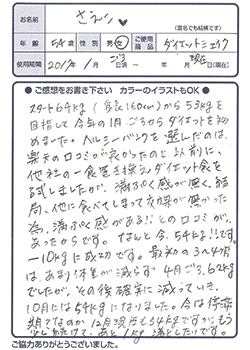 お名前
さえり
(匿名でも結構です)
年齢 54才 性別 男・女 ご使用商品 ダイエットシェイク
使用期間 2011年 1月ごろ 日 ー 年 現在 日(現在)
●ご感想をお書き下さい カラーのイラストもOK●
スタート64kg(身長160cm)から53kgを
目指して今年の1月ごろからダイエットを始
めました。ヘルシーバンクを選んだのは、
楽天の口コミが良かったのと以前に、
他社の一食置き換えダイエット食を
試しましたが、満ぷく感が無く、結
局、他に食べてしまって効果が無かった
為、満ぷく感がある!!との口コミが、
あったからです。なんと今、54kg!!です。
-10kgに成功です。最初の3〜4ヶ月
は、あまり体重が減らず4月ごろ、62kg
でしたが、その後確実に減っていき、
10月には54kgになりました。今は停滞
期なのか12月現在も54kgですが、もう
少し続けて、あと1kg減をしたいです。
ご協力ありがとうございました。